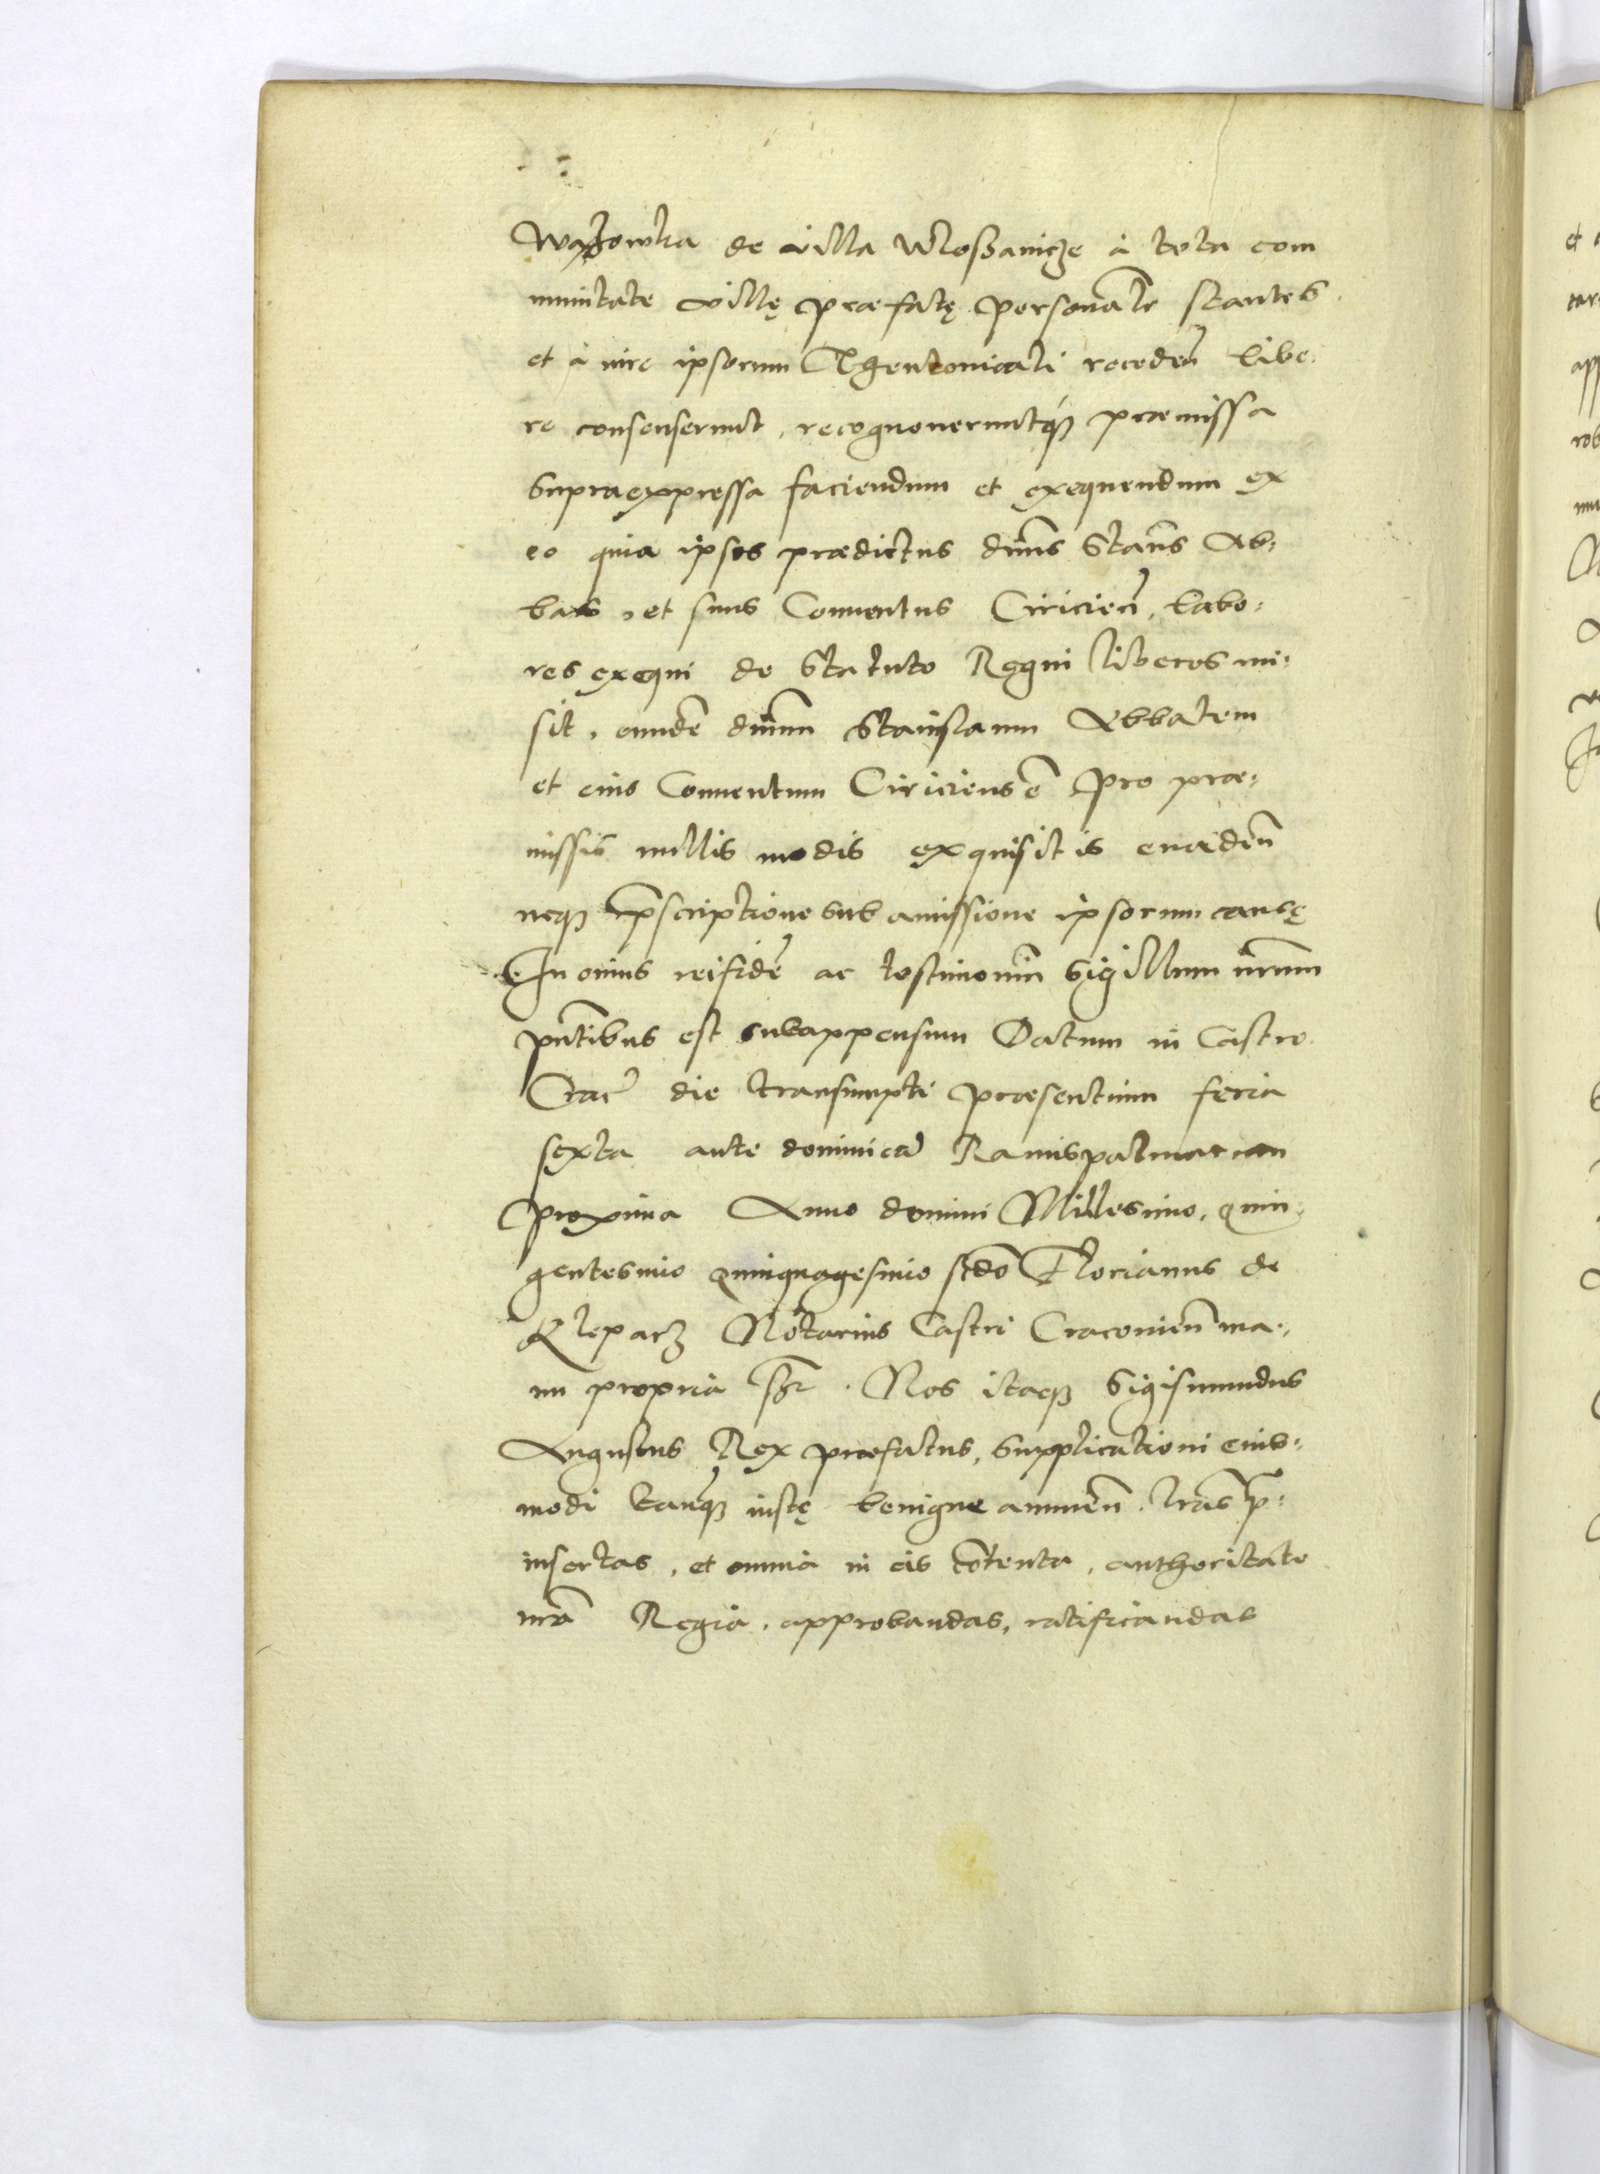 de villa Wlosanicze à tota com
munitate villę præfatę personalr̃ stantes
et à iure ipsorum Thentonicali receden̄ libe
re consenserunt, recognoverunt́q; præmissa
supraexpressa faciendum et exequendum ex
eo quia ipsos prædictus dnūs Stanūs Ab:
bas, et suus Conventus Ciricien̄, labo:
res exequi de Statuto Regni liberos mi:
sit, eundē dnūm Stanislaum Abbatem
et eius Conventum Ciriciensē pro præ:
missis nullis modis exquisitis evaden̄
neq; p̄scriptione sub amissione ipsorum causę
In cuius rei fidē ac testimoniū Sigillum nr̄um
pn̄tibus est subappensum Datum in Castro
Crac̄ die transumpti præsentium feria
sexta ante dominicā Ramispalmarum
proxima Anno domini Millesimo, quin:
gentesimo quinquagesimo scdō Florianus de
Kleparz Notarius Castri Cracovien̄ ma:
nu propria sst. Nos itaq; Sigismundus
Augustus Rex præfatus, supplicationi eius:
modi tanq; iustę benigne annuen̄, lrās p̄:
insertas, et omnia in eis cōtenta, authoritate
nrā Regia, approbandas, ratificandas